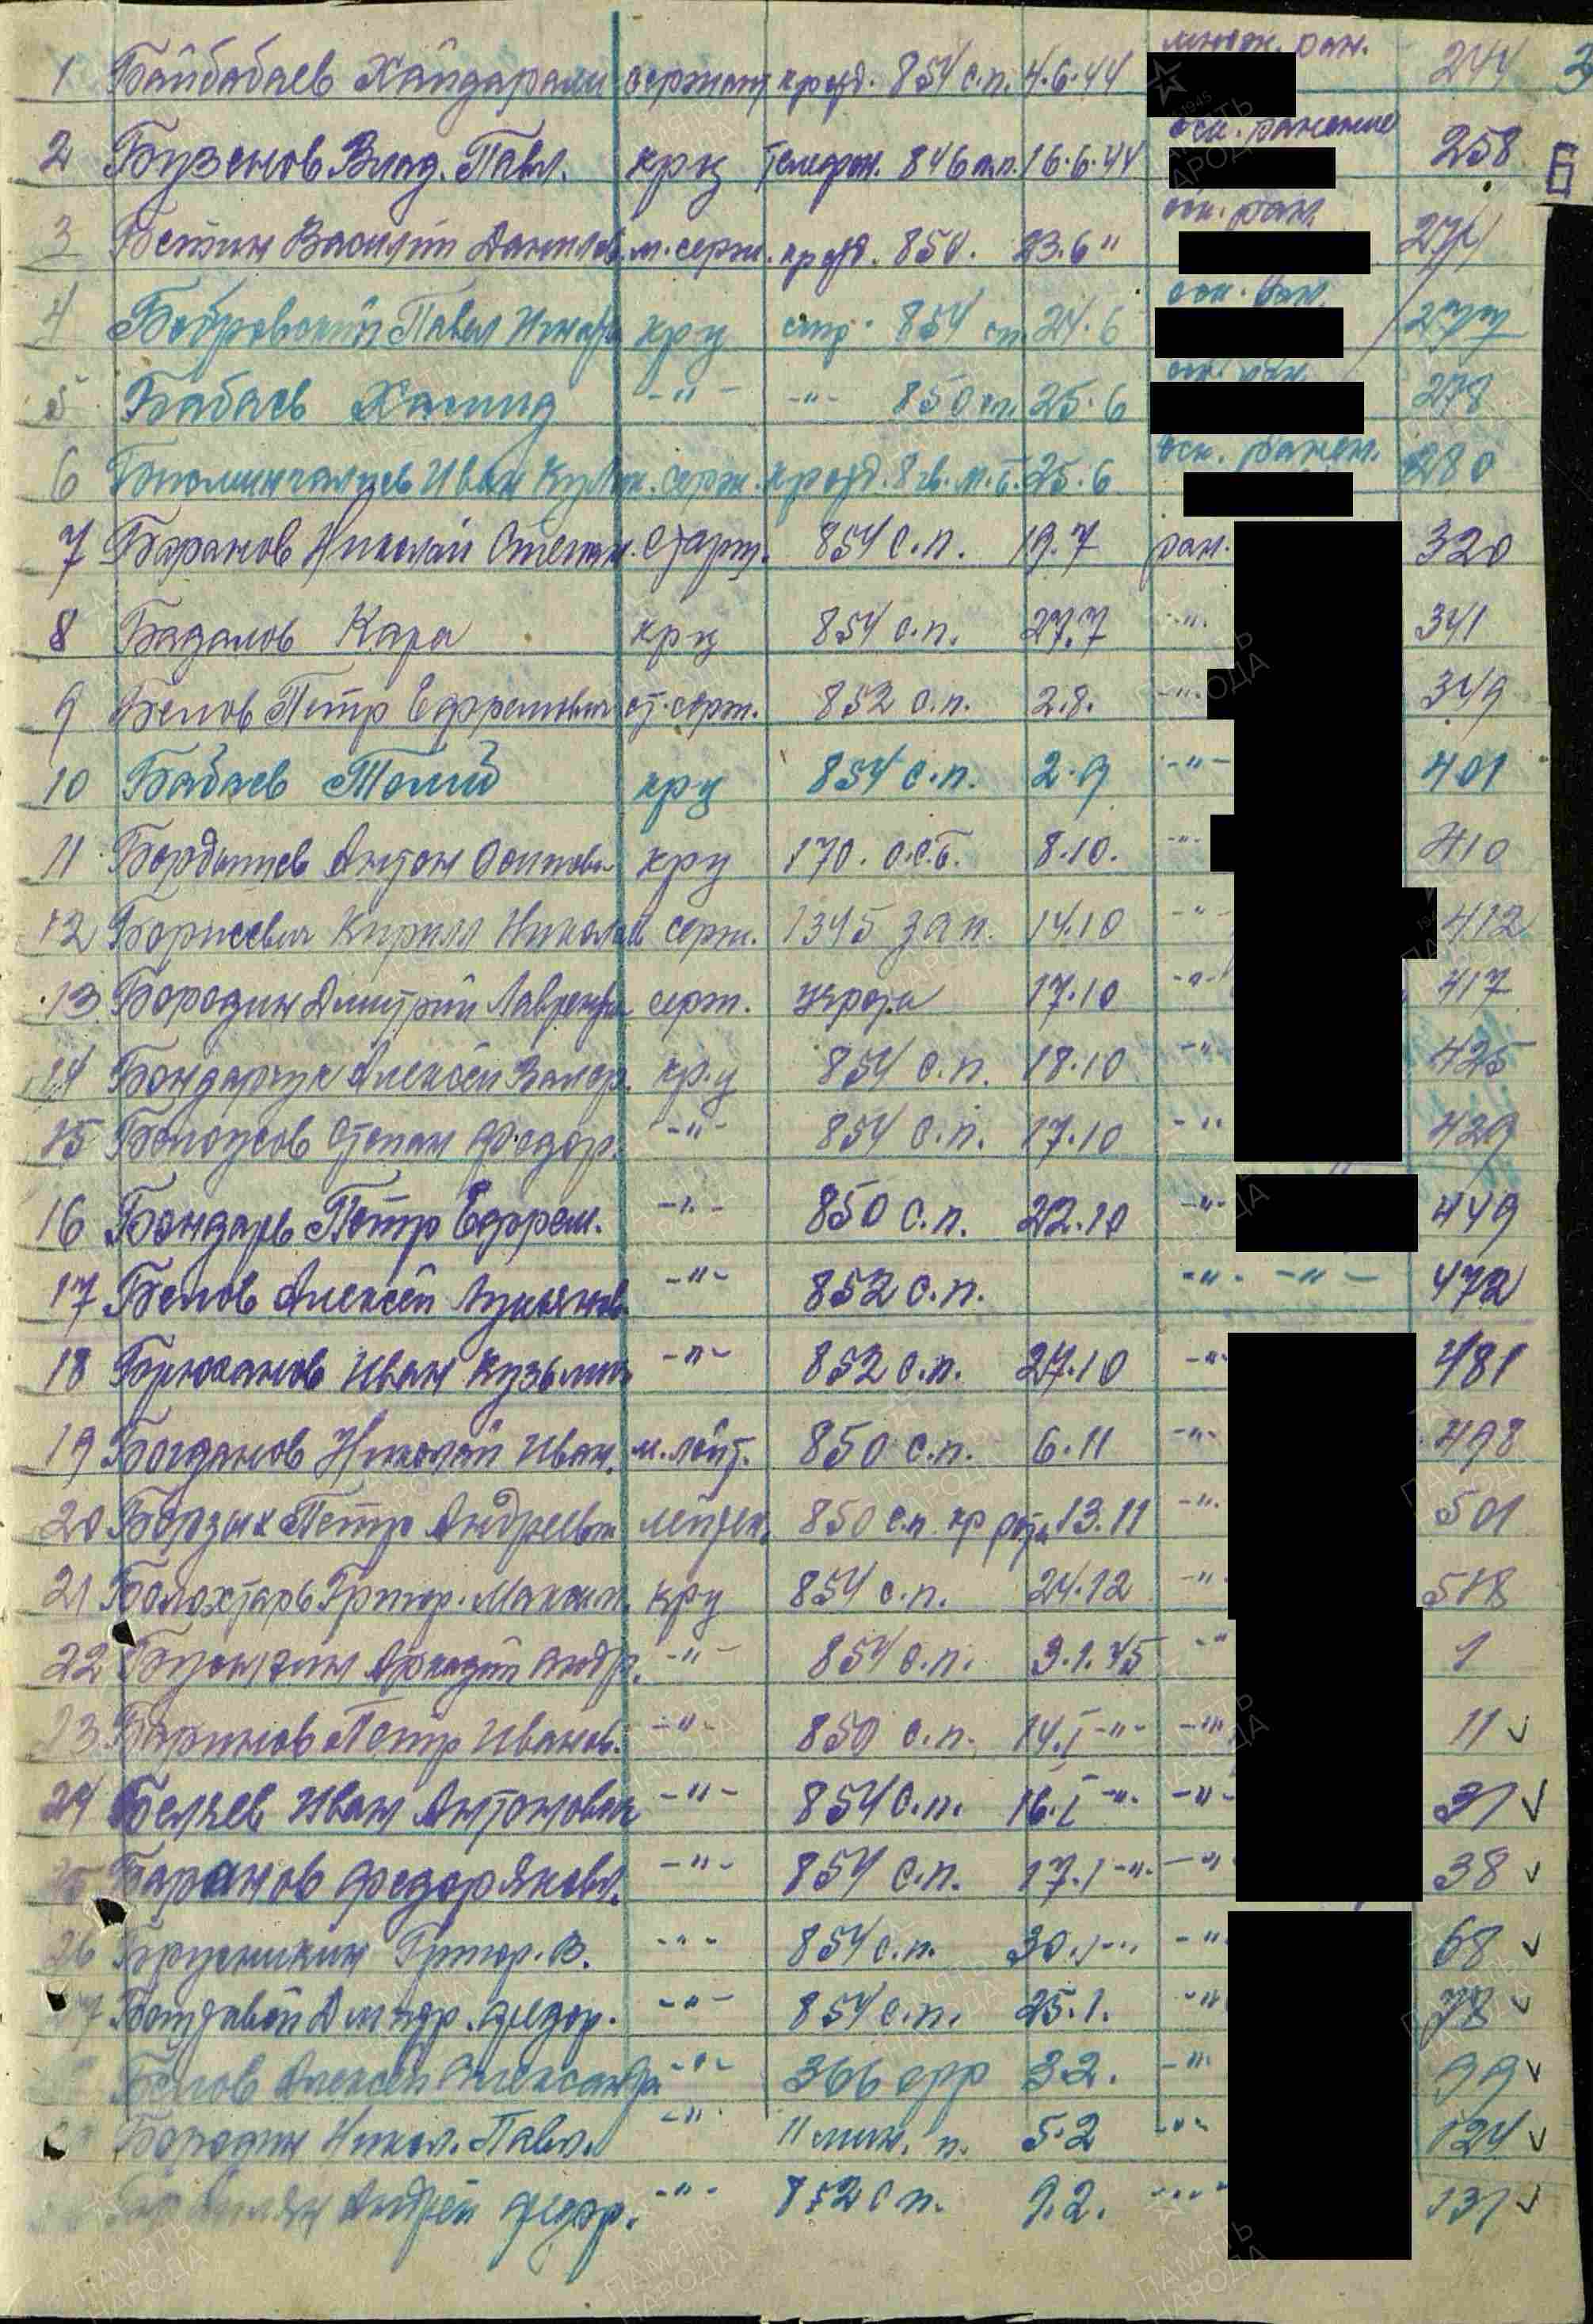 множ. ран.
1 Байбабаев Хайдарали сержант кр-ец. 854 с.п. 4.6.44 244 3
оск. ранение
2 Бузенов Влад. Павл. кр-ц телефон. 846 ап. 16.6.44 258 Б
оск. ран.
3 Василий Данилов. м. серж. 850. 23.6 " 271
оск. ран.
4 Бобровский Павел кр-ц стр. 854 сп. 24.6 277
оск. ран.
5 Бабаев Хамид -"- -"- 850 сп. 25.6 278
оск. ранен.
6 Иван Кузьм. серж. 8 гв. м.б. 25.6 280
7 Баранов Николай Степан. старш. 854 с.п. 19.7 ран. 320
8 Бадалов Кара кр-ц 854 с.п. 27.7 -"- 341
9 Белов Петр Ефремович ст. серж. 852 с.п. 2.8. -"- 349
10 Бабаев кр-ц 854 с.п. 2.9 -"- 401
11 Антон Осипович кр-ц 170. о.с.б. 8.10. -"- 410
12 Борисевич Кирилл Николаев серж. 1345 зап. 14.10 -"- 412
13 Бородин Дмитрий Лаврентьев серж. 17.10 -"- 417
14 Бондарчук Алексей кр-ц 854 с.п. 18.10 -"- 425
15 Белоусов Степан Федор. -"- 854 с.п. 17.10 -"- 429
16 Бондарь Петр Ефрем. -"- 850 с.п. 22.10 -"- 449
17 Белов Алексей Лукьянов. -"- 852 с.п. -"- -"- 472
18 Брюханов Иван Кузьмич -"- 852 с.п. 27.10 -"- 481
19 Богданов Николай Иван. м. лейт. 850 с.п. 6.11 -"- 498
20 Борзых Петр Андреевич лейтен. 850 с.п. 13.11 -"- 501
21 Болохтарь Григор. Максим. кр-ц 854 с.п. 24.12 -"- 518
22 Аркадий Андр. -"- 854 с.п. 3.1.45 -"- 1
23 Баринов Петр Иванов. -"- 850 с.п. 14.I -"- -"- 11 ✓
24 Беляев Иван Антонович -"- 854 с.п. 16.I -"- -"- 31 ✓
25 Баранов Федор Яковл. -"- 854 с.п. 17.1 -"- -"- 38 ✓
26 Брусникин Григор. В. -"- 854 с.п. 30.1 -"- -"- 68 ✓
27 Федор. -"- 854 с.п. 25.1. -"- 78 ✓
Белов Алексей Александр. -"- 366 3.2. -"- 99 ✓
Бородин Никол. Павл. -"- 11 мин. п. 5.2 -"- 124 ✓
Андрей Федор. -"- 852 с п. 9.2. -"- 131 ✓